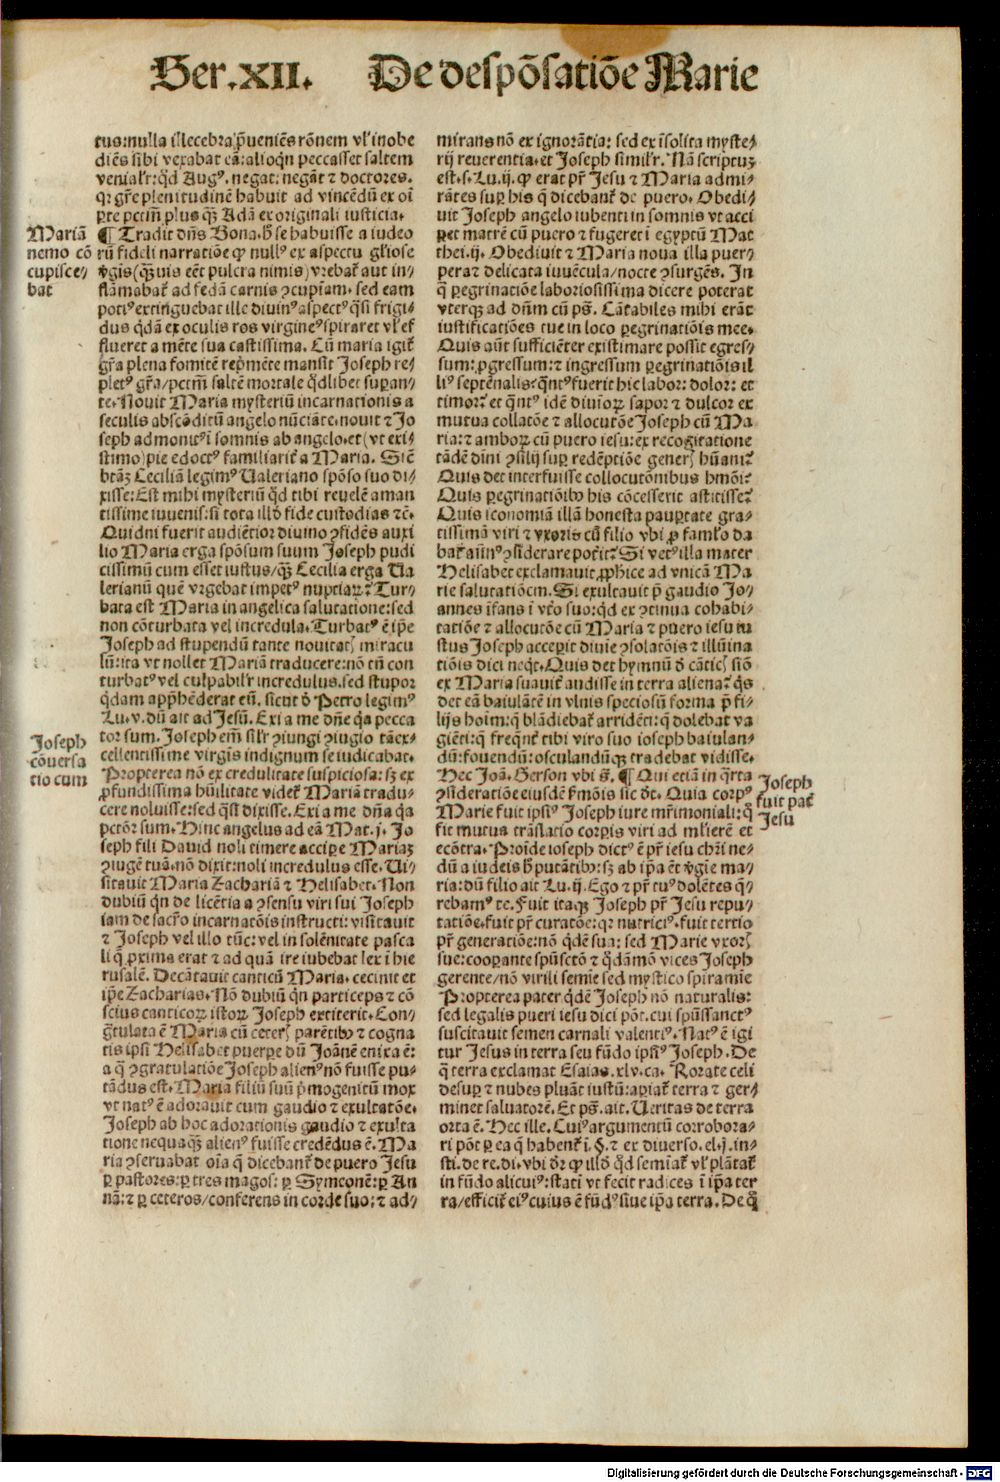 Ser.XII. De despōsatiōe Marie
tus: nulla illecebra p̄ueniēs rōnem vl' inobe
diēs sibi vexabat eā: alioqn peccasset saltem
venialr: qd Augꝰ. negat: negāt ⁊ doctores.
qꝛ gr̄e plenitudinē habuit ad vincēdū ex oī
ꝑte pctm̄ plus qꝫ Adā ex originali iusticia.
Mariā
nemo cō
cupisce/
bat
¶ Tradit dn̄s Bona. h̄ se habuisse a iudeo
rū fideli narratiōe ꝙ nullꝰ ex aspectu gl'iose
v̄gīs (qꝫuis eēt pulcra nimis) vrebat̄ aut in/
flāmabat̄ ad fedā carnis ꝯcupīam. sed eam
potiꝰ extinguebat ille diuinꝰ aspectꝰ qsi frigi/
dus qdā ex oculis ros virgineꝰ spiraret vl' ef
flueret a mēte sua castissima. Cū maria igit̄
gr̄a plena fomitē rep̄mēte mansit Joseph re/
pletꝰ gr̄a/pctm̄ saltē mortale qdlibet supan/
te. Nouit Maria mysteriū incarnationis a
seculis abscōditū angelo nūciāte. nouit ⁊ Jo
seph admonitꝰ ī somnis ab angelo. et (vt exi/
stimo) pie edoctꝰ familiarit̄ a Maria. Siē
btāꝫ Ceciliā legimꝰ Ualeriano spōso suo di/
xisse: Est mihi mysteriū qd tibi reuelē aman
tissime iuuenis: si tota illd fide custodias ⁊c̄.
Quidni fuerit audiētior diuino ꝯfidēs auxi
lio Maria erga spōsum suum Joseph pudi
cissimū cum esset iustus/qꝫ Cecilia erga Ua
lerianū quē vrgebat impetꝰ nuptiaꝝ? Tur/
bata est Maria in angelica salutatione: sed
non cōturbata vel incredula. Turbatꝰ ē ip̄e
Joseph ad stupendū tante nouitatꝭ miracu
lū: ita vt nollet Mariā traducere: nō tn̄ con
turbatꝰ vel culpabilr incredulus. sed stupor
qdam app̄hēderat eū. sicut d̄ Petro legimꝰ
Lu. v. dū ait ad Jesū. Exi a me dn̄e qa pecca
Joseph
cōuersa
tio cum
tor sum. Joseph em̄ silr ꝯiungi ꝯiugio tā ex/
cellentissime virgis indignum se iudicabat.
Propterea nō ex credulitate suspiciosa: sꝫ ex
ꝓfundissima hūilitate videt̄ Mariā tradu/
cere noluisse: sed qsi dixisse. Exi a me dn̄a qa
pctōr sum. Hinc angelus ad eā Mat. j. Jo
seph fili David noli timere acciꝑe Mariaꝫ
ꝯiugē tuā. nō dixit: noli incredulus esse. Ui/
sitauit Maria Zachariā ⁊ Helisabet. Non
dubiū qn de licētia a ꝯsensu viri sui Joseph
iam de sacr̄o incarnatōis instructi: visitauit
⁊ Joseph vel illo tūc: vel in solēnitate pasca
li q̄ ꝓxima erat ⁊ ad quā ire iubebat lex ī hie
rusalē. Decātauit canticū Maria. cecinit et
ip̄e Zacharias. Nō dubiū qn particeps ⁊ cō
scius canticoꝝ istoꝝ Joseph extiterit. Con/
g̃tulata ē Maria cū ceterꝭ parētibꝰ ⁊ cogna
tis ipsi Helisabet puerꝑe dū Joānē enixa ē:
a q̄ ꝯgratulatiōe Joseph alienꝰ nō fuisse pu/
tādus est. Maria filiū suū p̄mogenitū mox
vt natꝰ ē adorauit cum gaudio ⁊ exultatōe.
Joseph ab hoc adorationis gaudio ⁊ exulta
tione nequaqꝫ alienꝰ fuisse credēdus ē. Ma
ria ꝯseruabat oīa q̄ dicebant̄ de puero Jesu
ꝑ pastores: ꝑ tres magos: ꝑ Symeonē: ꝑ An
nā: ⁊ ꝑ ceteros/conferens in corde suo: ⁊ ad/
mirans nō ex ignorātia: sed ex īsolita myste/
rij reuerentia. et Joseph similr. Nā scriptuꝫ
est. s. Lu. ij. ꝙ erat pr̄ Jesu ⁊ Maria admi/
rātes suꝑ his q̄ dicebant̄ de puero. Obedi/
uit Joseph angelo iubenti in somnis vt acci
ꝑet matrē cū puero ⁊ fugeret ī egyptū Mat
thei. ij. Obediuit ⁊ Maria noua illa puer/
pera ⁊ delicata iuuēcula/nocte ꝯsurgēs. In
q̄ ꝑegrinatiōe laboriosissima dicere poterat
vterqꝫ ad dn̄m cū ps̄. Cātabiles mihi erāt
iustificatiōes tue in loco ꝑegrinatiōis mee.
Quis aūt sufficiēter existimare possit egres/
sum: ꝓgressum: ⁊ ingressum ꝑegrinatiōis il
liꝰ septēnalis: qn̄tꝰ fuerit hic labor: dolor: et
timor? et qn̄tꝰ idē diuīoꝝ sapor ⁊ dulcor ex
mutua collatōe ⁊ allocutōe Joseph cū Ma
ria: ⁊ amboꝝ cū puero iesu: ex recogitatione
tādē diui ꝯsilij suꝑ redēptiōe generꝭ hūani?
Quis det interfuisse collocutōnibus hmōi?
Quis ꝑegrinatiōibꝰ his cōcesserit astitisse?
Quis iconomiā illā honesta pauꝑtate gra/
tissimā viri ⁊ vxoris cū filio vbi ꝓ famlo da
bat̄ asinꝰ ꝯsiderare poterit? Si vetꝰ illa mater
Helisabet exclamauit ꝓphīce ad vnicā Ma
rie salutatiōem. Si exultauit p̄ gaudio Jo/
annes īfans ī vtō suo: qd ex ꝯtinua cohabi/
tatiōe ⁊ allocutōe cū Maria ⁊ puero iesu iu
stus Joseph acceperit diuīe ꝯsolatōis ⁊ illūina
tiōis dici neqt. Quis det hymnū d̄ cāticꝭ siō
ex Maria suauit̄ audisse in terra aliena? qs
det eā baiulātē in vlnis speciosū forma p̄ fi/
lijs hoīm: q̄ blādiebat̄ arridēti: q̄ dolebat va
giēti: q̄ freqn̄t̄ tibi viro suo ioseph baiulan/
dū: fouendū: osculandūqꝫ tradebat vidisse.
Hec Joā. Gerson vbi s̄. ¶ Qui etiā in qrta
Joseph
fuit pat̄
Jesu
ꝯsideratiōe eiusdē s̄mōis sic dt. Quia corpꝰ
Marie fuit ipsiꝰ Joseph iure mr̄imoniali: q̄
fit mutua trāslatio corꝑis viri ad mlierē et
ecōtra. Proīde ioseph dictꝰ ē pr̄ iesu chrī ne/
dū a iudeis h̄ putatibꝰ: sꝫ ab ip̄a ēt v̄gīe ma/
ria: dū filio ait Lu. ij. Ego ⁊ pr̄ tuꝰ dolētes q̄/
rebamꝰ te. Fuit itaqꝫ Joseph pr̄ Jesu repu/
tatiōe. fuit pr̄ curatōe: qꝛ nutriciꝰ. fuit tertio
pr̄ generatiōe: nō qdē sua: sed Marie vxorꝭ
sue: cooꝑante spūsctō ⁊ qdāmō vices Joseph
gerente/nō virili semīe sed mystico spiramīe
Propterea pater qdē Joseph nō naturalis:
sed legalis pueri iesu dici pōt. cui spūssanctꝰ
suscitauit semen carnali valentiꝰ. Natꝰ ē igi
tur Jesus in terra seu fūdo ipsiꝰ Joseph. De
q̄ terra exclamat Esaias. xlv. ca. Rorate celi
desuꝑ ⁊ nubes pluāt iustū: aꝑiat̄ terra ⁊ ger/
minet saluatorē. Et ps̄. ait. Ueritas de terra
orta ē. Hec ille. Cuiꝰ argumentū corrobora/
ri pōt ꝑ ea q̄ habent̄ ī. §. ⁊ ex diuerso. el. j. in/
sti. de re. di. vbi dr̄ ꝙ illd qd semīat̄ vl' plātat̄
in fūdo alicuiꝰ: stati vt fecit radices ī ip̄a ter
ra/efficit̄ eiꝰ cuius ē fūdꝰ siue ip̄a terra. De q̄
Digitalisierung gefördert durch die Deutsche Forschungsgemeinschaft - DFG